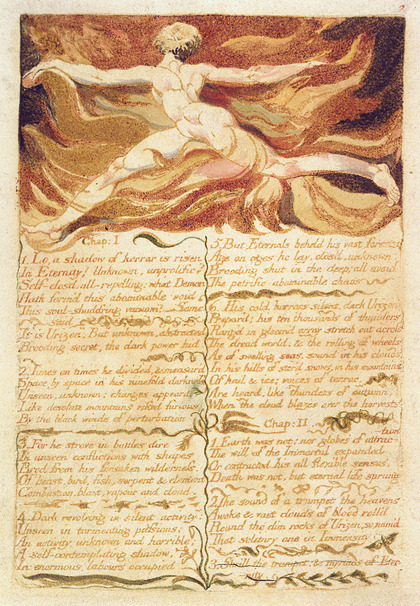 Chap: I
1. Lo, a shadow of horror is risen
In Eternity! Unknown, unprolific!
Self-closd, all-repelling: what Demon
Hath form'd this abominable void
This soul-shudd'ring vacuum? Some
said
It is Urizen, But unknown, abstracted
Brooding secret, the dark power hid.
2. Times on times he divided, & measur'd
Space by space in his ninefold darkness
Unseen, unknown: changes appeard
Like desolate mountains rifted furious
By the black winds of perturbation
3. For he strove in battles dire
In unseen conflictions with shapes
Bred from his forsaken wilderness,
Of beast, bird, fish, serpent & element
Combustion, blast, vapour and cloud.
4. Dark revolving in silent activity:
Unseen in tormenting passions;
An activity unknown and horrible;
A self-contemplating shadow,
In enormous labours occupied
5. But Eternals beheld his vast forests
Age on ages he lay, clos'd, unknown
Brooding shut in the deep; all avoid
The petrific abominable chaos
6. His cold horrors silent, dark Urizen
Prepar'd: his ten thousands of thunders
Rang'd in gloom'd array stretch out across
The dread world, & the rolling of wheels
As of swelling seas, sound in his clouds
In his hills of stor'd snows, in his mountains
Of hail & ice; voices of terror,
Are heard, like thunders of autumn,
When the cloud blazes over the harvests
Chap: II
1. Earth was not: nor globes of attrac-
tion
The will of the Immortal expanded
Or contracted his all flexible senses.
Death was not, but eternal life sprung
2. The sound of a trumpet the heavens
Awoke & vast clouds of blood roll'd
Round the dim rocks of Urizen, so nam'd
That solitary one in Immensity
3. Shrill the trumpet, & myriads of Eter-